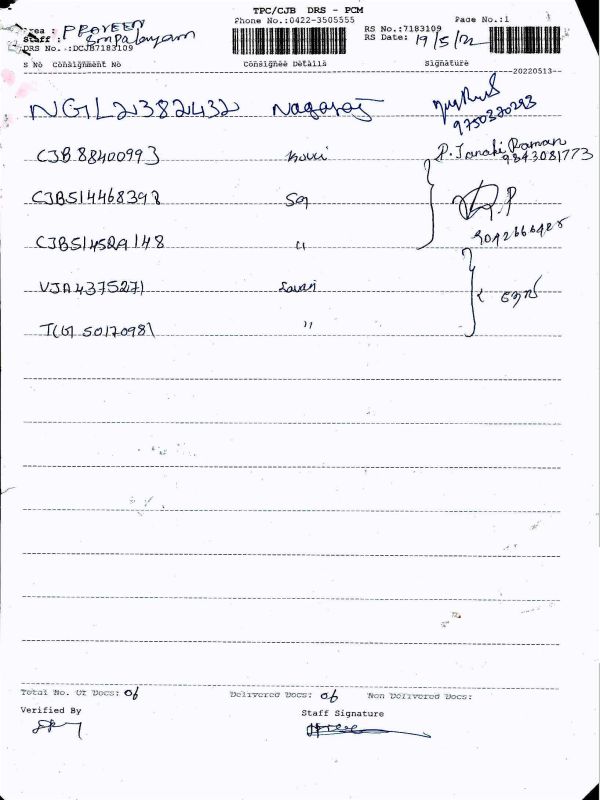 TPC/CJB DRS - PCM
Area : PRAVEEN Phone No.:0422-3505555 Page No.:1
Staff : Smpalayam RS No.:7183109
DRS No. :DCJB7183109 RS Date: 19/5/22
S No Consignment No Consignee Details Signature
20220513
NGL2382432 Nagaraj
9750370293
CJB88400993 P. Janaki Raman
9843081773
CJB514468398
CJB514529148 "
VJA4375271
TCG 50170981 "
Total No. Of Docs: 06 Delivered Docs: 06 Non Delivered Docs:
Verified By Staff Signature